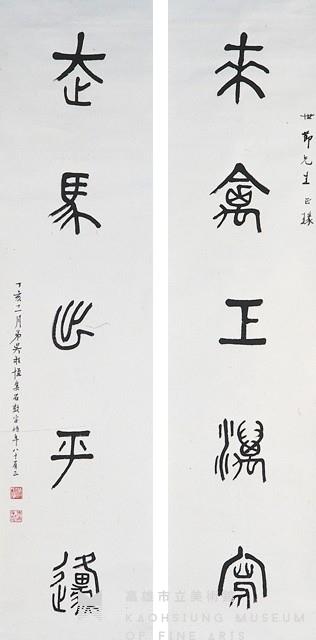 世節先生正
禽正
走馬出平邍
丁亥二月弟吳敬恆集石鼓字時年八十有三
高雄市立美術館
KAOHSIUNG MUSEUM
OF FINE ARTS